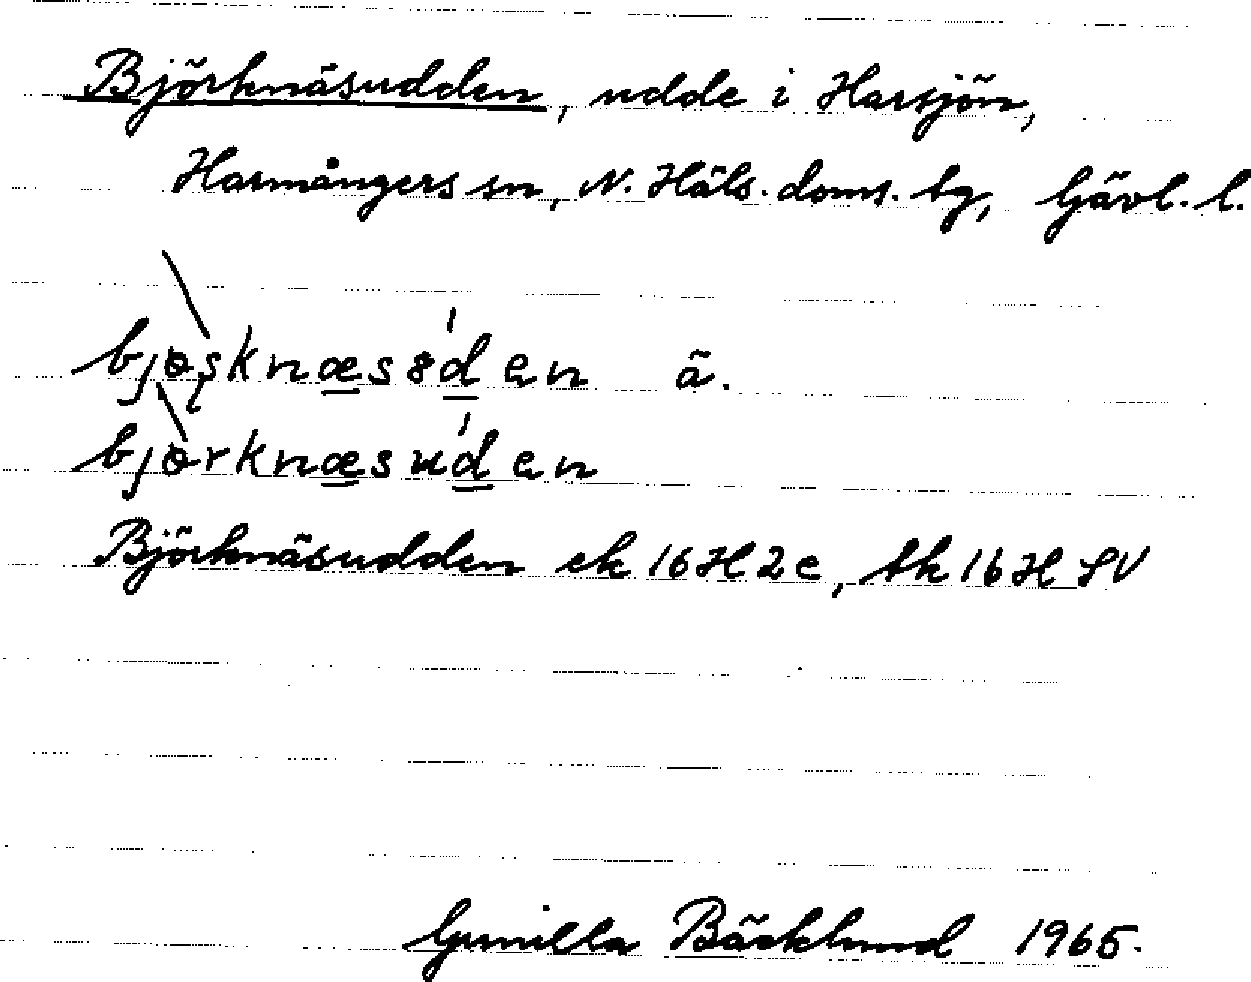 Björknäsudden, udde i Harsjön,
Harmångers sn, N. Häls. doms. tg, Gävl. l.
bjɵşknæs8den ä.
bjɵrknæsuden
Björknäsudden ek 16H2e, tk 16H SV
Gunilla Bäcklund 1965.